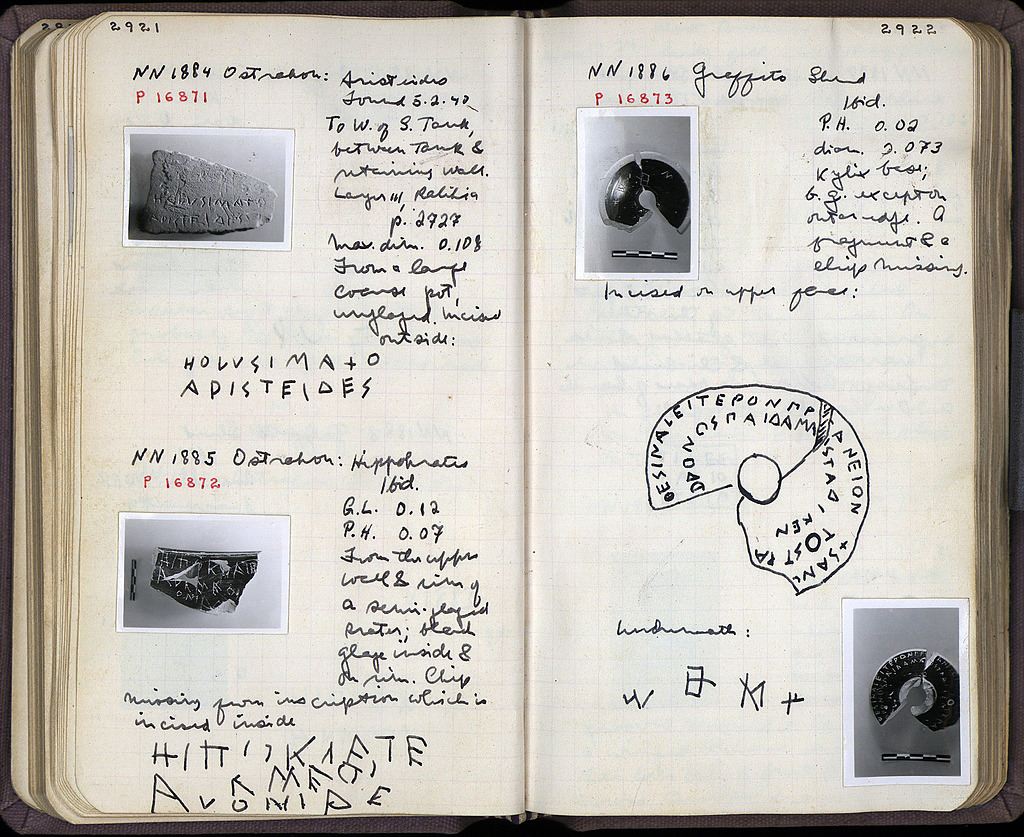 2921
NN 1884 Ostrakon: Aristeides
P 16871
Found 5.2.40
To W. of S. Tank,
between Tank &
retaining wall.
Layer III,
p. 2727
Max. dim. 0.108
From a large
coarse pot,
unglazed. Incised
outside:
HOLVSIMA+O
ADISTEIDES
NN 1885 Ostrakon: Hippokrates
P 16872
Ibid.
G.L. 0.12
P.H. 0.07
From the upper
wall & rim of
a semi-glazed
krater; black
glaze inside &
on rim. Chip
missing from inscription which is
incised inside
2922
NN 1886 Graffito Sherd
P 16873
Ibid.
P.H. 0.02
diam. 0.073
Kylix base;
b.g. except on
outer edge. A
fragment & a
chip missing.
Incised on upper face:
Underneath: